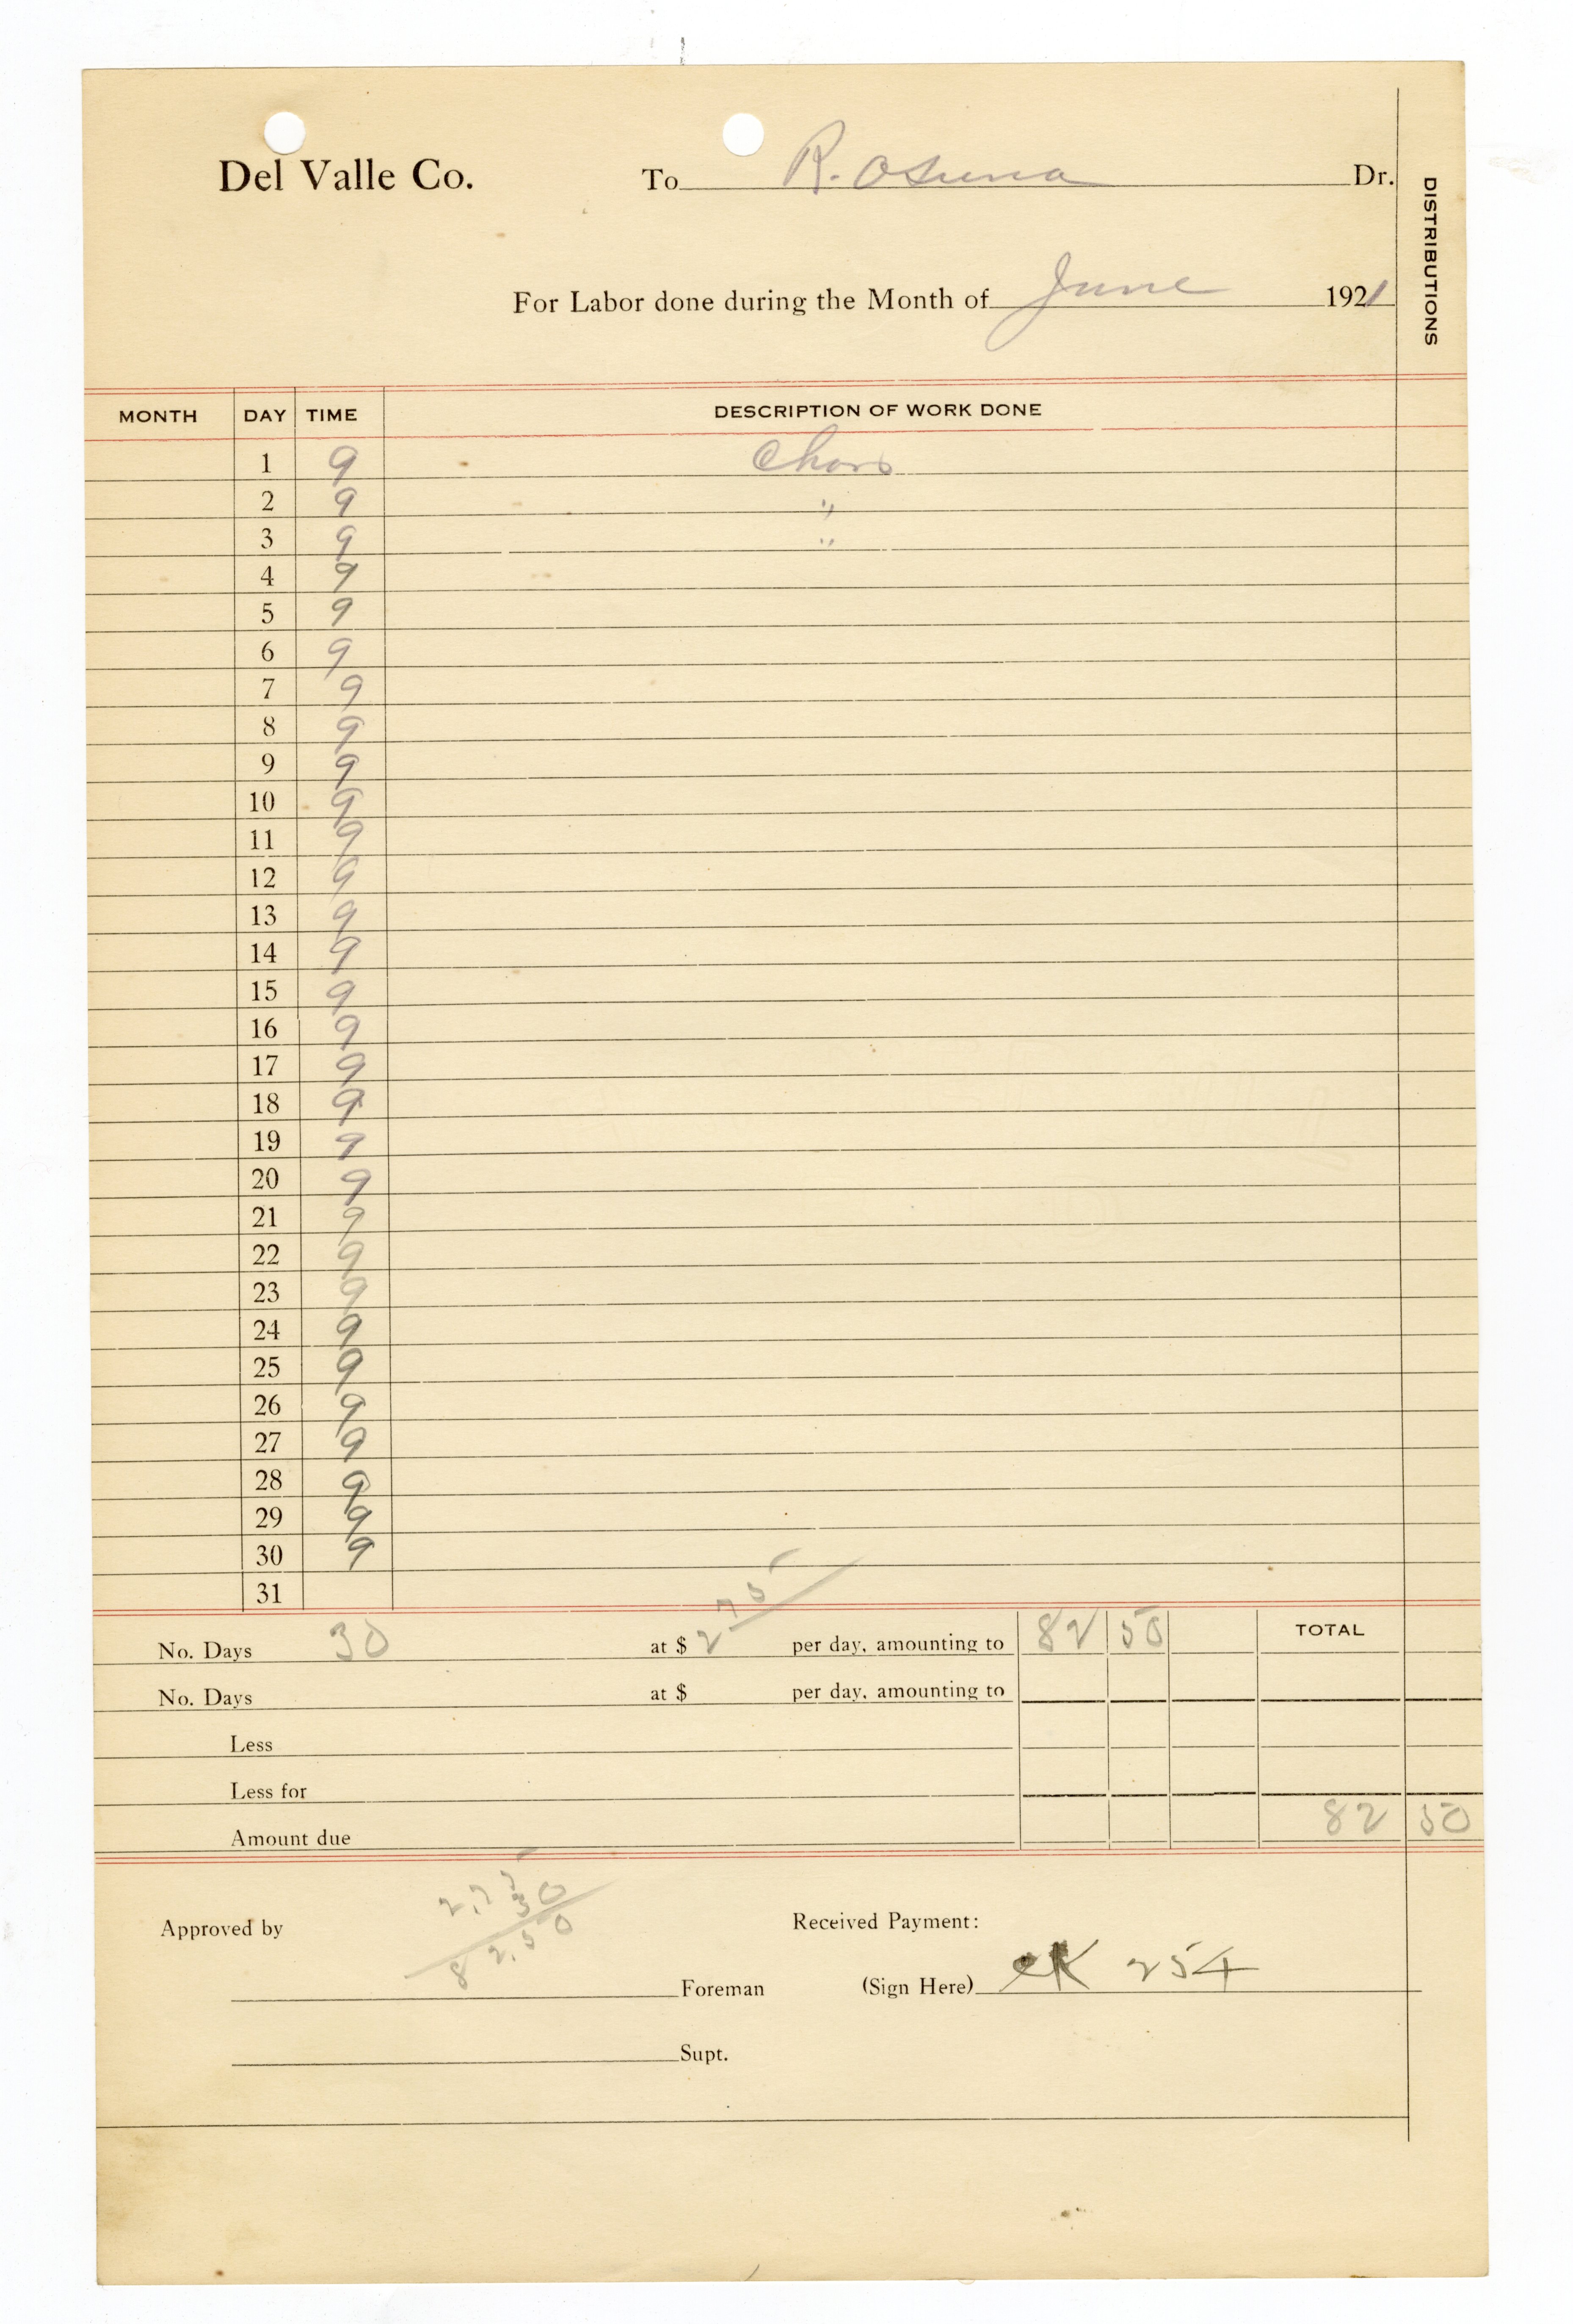 Del Valle Co. To R. Osuna Dr.
DISTRIBUTIONS
For Labor done during the Month of June 1921
MONTH DAY TIME DESCRIPTION OF WORK DONE
1 9 Chors
2 9 "
3 9 "
4 9
5 9
6 9
7 9
8 9
9 9
10 9
11 9
12 9
13 9
14 9
15 9
16 9
17 9
18 9
19 9
20 9
21 9
22 9
23 9
24 9
25 9
26 9
27 9
28 9
29 9
30 9
31
No. Days 30 at $ 2 75 per day, amounting to 82 50 TOTAL
No. Days at $ per day, amounting to
Less
Less for
Amount due 82 50
2.75
30
82.50
Approved by Received Payment:
Foreman (Sign Here) CK 254
Supt.